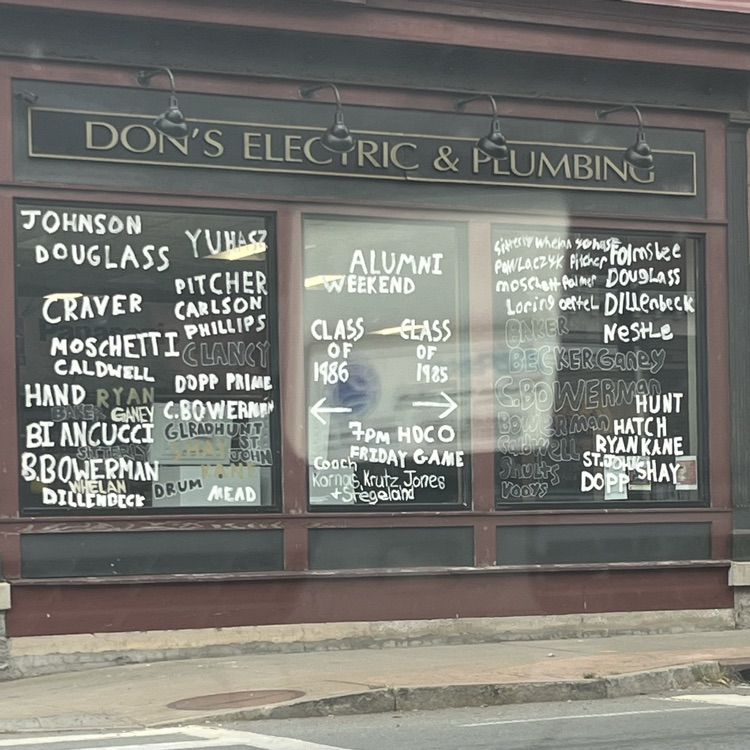 DON'S ELECTRIC & PLUMBING
JOHNSON
DOUGLASS
CRAVER
MOSCHETTI
CALDWELL
HAND RYAN
BAKER GANEY
BIANCUCCI
SITTERLY
BBOWERMAN
WHELAN
DILLENBECK
YUHASZ
PITCHER
CARLSON
PHILLIPS
CLANCY
DOPP PRIME
C.BOWERMAN
GLRADHUNT
SHAY ST.
KANE JOHN
DRUM MEAD
ALUMNI
WEEKEND
CLASS OF 1986
CLASS OF 1985
7pm HOCO
FRIDAY GAME
Coach
Kornas, Krutz, Jones
+ Stegeland
Sitterly Whelan Yuhasz
PAWLACZYK Pitcher
moschetti Palmer
Loring oertel
Folmsbee
DOUGLASS
DILLenbeck
NestLe
BAKER
BECKER Ganey
C.BOWERMAN
BOWerman
HUNT
HATCH
RYAN KANE
Shults
ST.JOHN SHAY
Voorys
DOPP